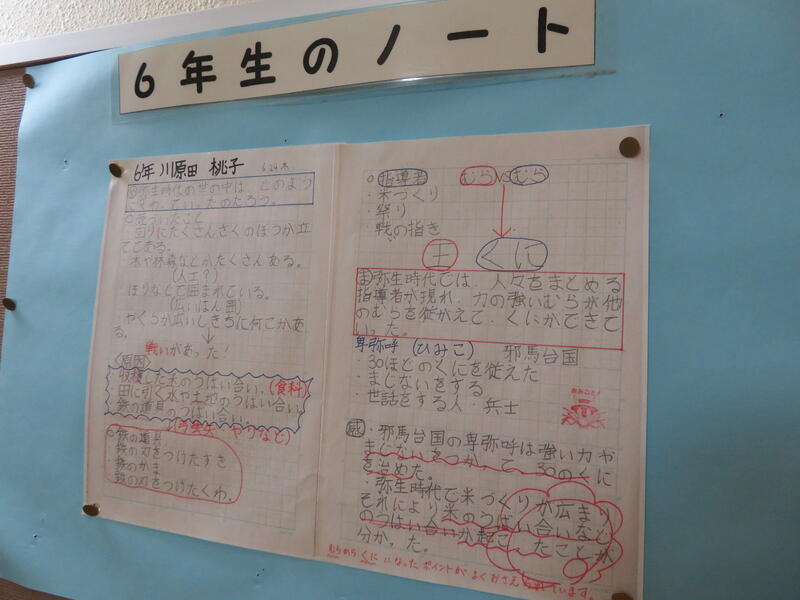 6年生のノート
6年 川原田 桃子 6.24木
弥生時代の世の中は、どのよう
に変わっていったのだろう。
○気づいたこと
・回りにたくさんさくのぼうが立
ててある。
・木や林森などがたくさんある。
(人工?)
・ほりなどで囲まれている。
(広いはん囲)
・やぐらが広いしきちに何こかあ
る。
戦いがあった!
〈原因〉
収穫した米のうばい合い。(食料)
田に引く水や土地のうばい合い
鉄の道具のうばい合い。
(弓矢 やりなど)
○鉄の道具
・鉄の刃をつけたすき
・鉄のかま
・鉄の刃をつけたくわ。
○指導者 むらVSむら
・米づくり
・祭り
・戦の指き
王 くに
ま 弥生時代では、人々をまとめる
指導者が現れ、力の強いむらが他
のむらを従がえて、くにができて
いった。
卑弥呼(ひみこ) 邪馬台国
・30ほどのくにを従えた
・まじないをする
・世話をする人・兵士
感 ・邪馬台国の卑弥呼は強い力や
まじないをつかって、30のくに
を治めた。
・弥生時代で米づくりが広まり
それにより米のうばい合いなど
のうばい合いが起こったことが
分かった。
むらから くに になった ポイントが よくおさえられています。